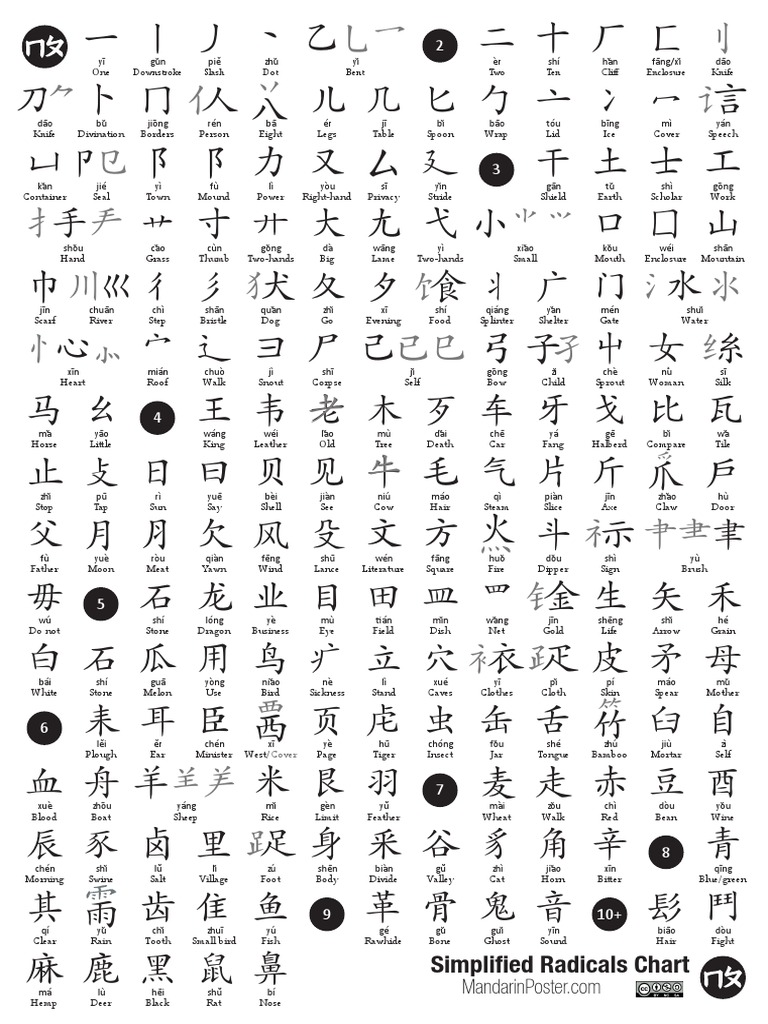 一 丨 丿 丶 乙 乚 乛 2 二 十 厂 匚 刂
yī gǔn piě zhǔ yǐ èr shí hǎn fāng/xǐ dāo
One Downstroke Slash Dot Bent Two Ten Cliff Enclosure Knife
刀 ⺈ 卜 冂 亻 人 八 丷 儿 几 匕 勹 亠 冫 冖 讠 言
dāo bǔ jiōng rén bā ér jī bǐ bāo tóu bīng mì yán
Knife Divination Borders Person Eight Legs Table Spoon Wrap Lid Ice Cover Speech
凵 卩 㔾 阝 阝 力 又 厶 廴 3 干 土 士 工
kǎn jié yì fù lì yòu sī yǐn gān tǔ shì gōng
Container Seal Town Mound Power Right-hand Privacy Stride Shield Earth Scholar Work
扌 手 龵 艹 寸 廾 大 尢 弋 小 ⺌ ⺍ 口 囗 山
shǒu cǎo cùn gǒng dà wāng yì xiǎo kǒu wéi shān
Hand Grass Thumb Two-hands Big Lame Two-hands Small Mouth Enclosure Mountain
巾 川 巛 彳 彡 犭 犬 夂 夕 饣 食 丬 广 门 氵 水 氺
jīn chuān chì shān quǎn zhǐ xī shí qiáng yǎn mén shuǐ
Scarf River Step Bristle Dog Go Evening Food Splinter Shelter Gate Water
忄 心 ⺗ 宀 辶 彐 尸 己 已 巳 弓 子 孑 屮 女 纟 糹
xīn mián chuò jì shī jǐ gōng zǐ chè nǚ sī
Heart Roof Walk Snout Corpse Self Bow Child Sprout Woman Silk
马 幺 4 王 韦 老 木 歹 车 牙 戈 比 瓦
mǎ yāo wáng wéi lǎo mù dǎi chē yá gē bǐ wǎ
Horse Little King Leather Old Tree Death Car Fang Halberd Compare Tile
止 攴 日 曰 贝 见 牛 毛 气 片 斤 爪 爫 户
zhǐ pū rì yuē bèi jiàn niú máo qì piàn jīn zhǎo hù
Stop Tap Sun Say Shell See Cow Hair Steam Slice Axe Claw Door
父 月 月 欠 风 殳 文 方 火 灬 斗 礻 示 肀 ⺻ 聿
fù yuè ròu qiàn fēng shū wén fāng huǒ dǒu shì yù
Father Moon Meat Yawn Wind Lance Literature Square Fire Dipper Sign Brush
毋 5 石 龙 业 目 田 皿 罒 钅 金 生 矢 禾
wú shí lóng yè mù tián mǐn wǎng jīn shēng shǐ hé
Do not Stone Dragon Business Eye Field Dish Net Gold Life Arrow Grain
白 石 瓜 用 鸟 疒 立 穴 衤 衣 𤴔 疋 皮 矛 母
bái shí guā yòng niǎo nè lì xué yī pǐ pí máo mǔ
White Stone Melon Use Bird Sickness Stand Caves Clothes Cloth Skin Spear Mother
6 耒 耳 臣 覀 西 页 虍 虫 缶 舌 竹 臼 自
lěi ěr chén xī yè hǔ chóng fǒu shé zhú jiù zì
Plough Ear Minister West/Cover Page Tiger Insect Jar Tongue Bamboo Mortar Self
血 舟 羊 ⺷ ⺶ 米 艮 羽 7 麦 走 赤 豆 酉
xuè zhōu yáng mǐ gèn yǔ mài zǒu chì dòu yǒu
Blood Boat Sheep Rice Limit Feather Wheat Walk Red Bean Wine
辰 豕 卤 里 ⻊ 足 身 釆 谷 豸 角 辛 8 青
chén shǐ lǔ lǐ zú shēn biàn gǔ zhì jiǎo xīn qīng
Morning Swine Salt Village Foot Body Divide Valley Cat Horn Bitter Blue/green
其 雨 齿 隹 鱼 9 革 骨 鬼 音 10+ 髟 鬥
qí yǔ chǐ zhuī yú gé gǔ guǐ yīn biāo dòu
Clear Rain Tooth Small bird Fish Rawhide Bone Ghost Sound Hair Fight
麻 鹿 黑 鼠 鼻
má lù hēi shǔ bí
Hemp Deer Black Rat Nose
Simplified Radicals Chart
MandarinPoster.com